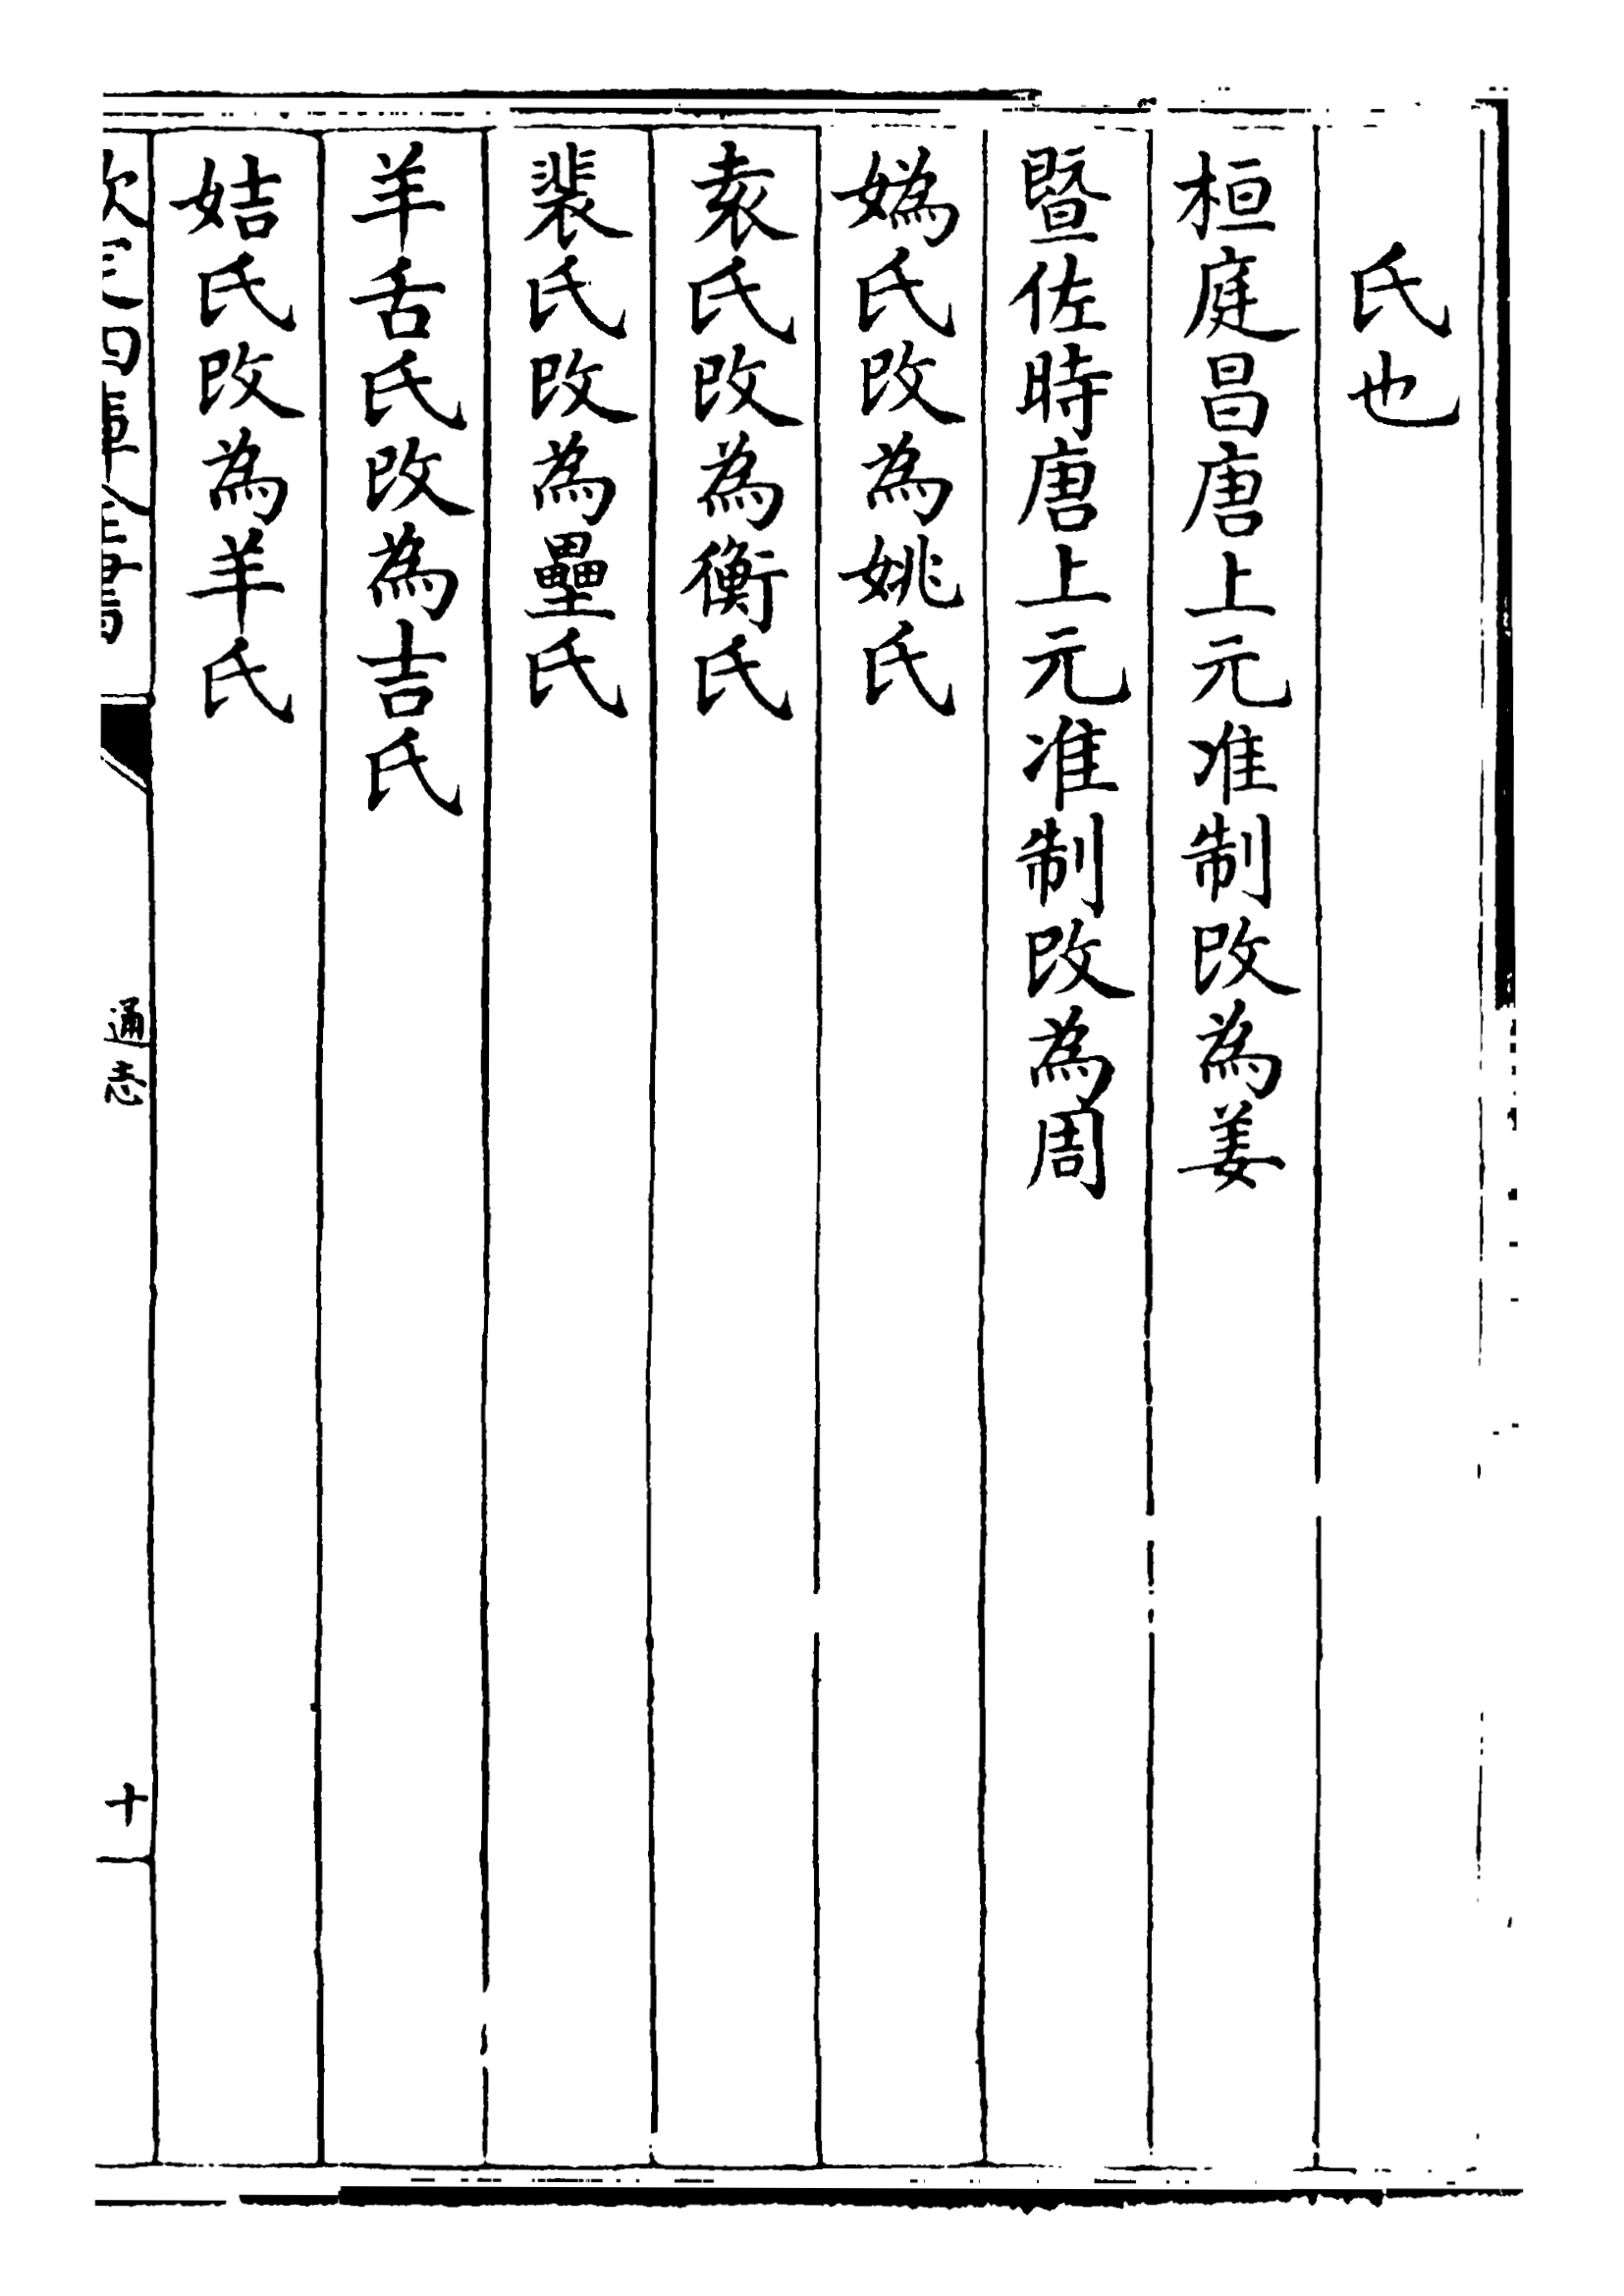 氏也
桓庭昌唐上元准制改為姜
暨佐時唐上元准制改為周
媯氏改為姚氏
袁氏改為衡氏
裴氏改為壘氏
羊舌氏改為吉氏
姞氏改為羊氏
欽定四庫全書
通志
十